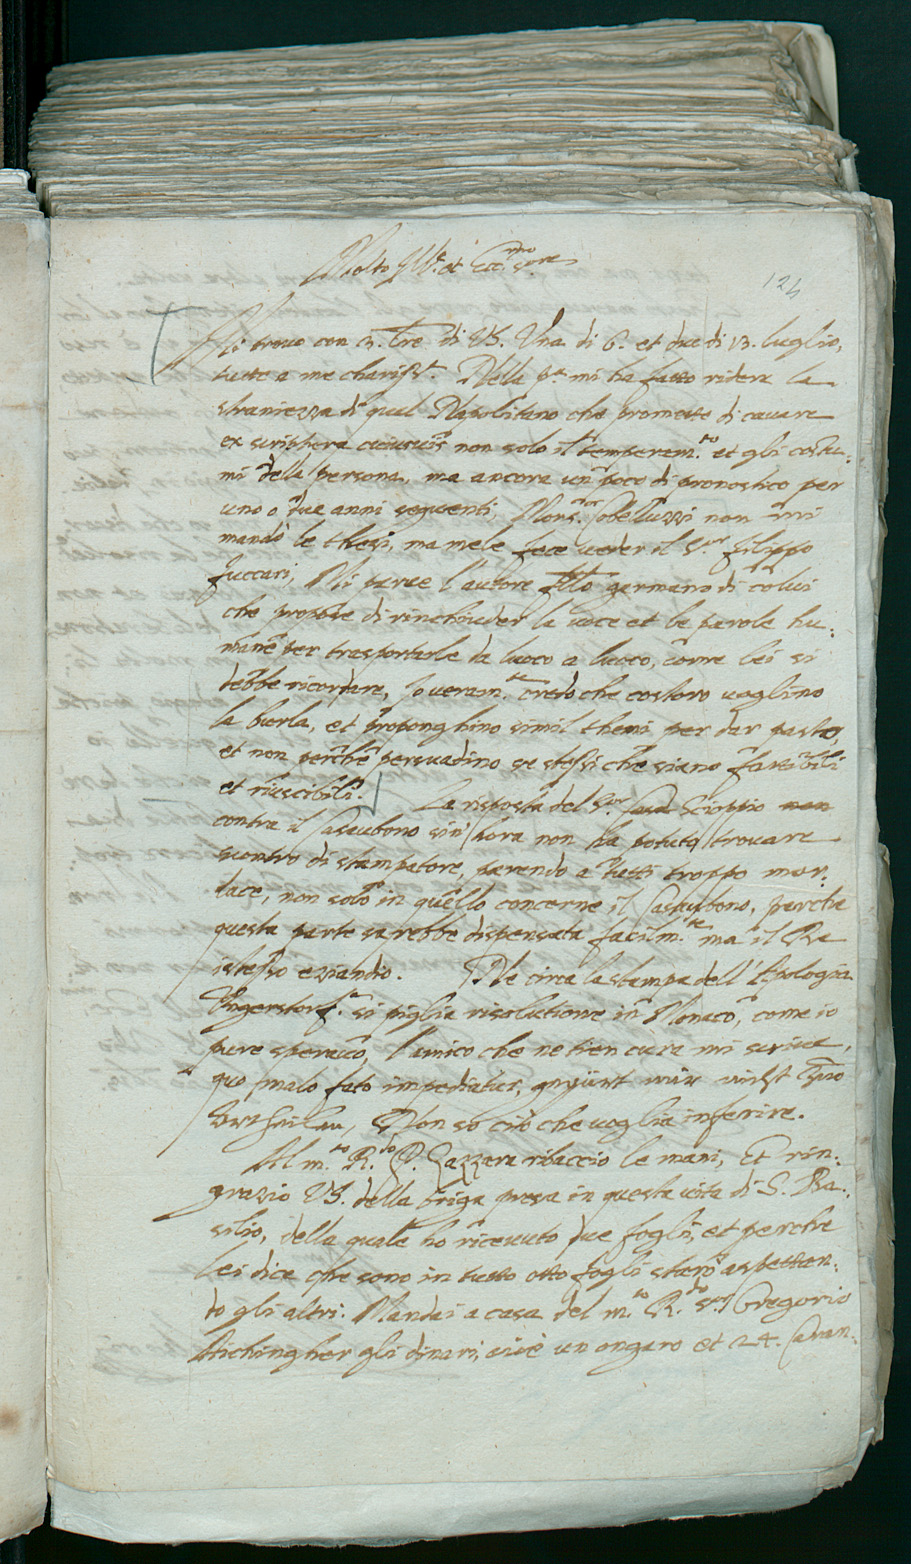 Molto Ill.e et Ecc.mo S.ore
124
Mi trovo con 3. lre di VS. Una di 6. et due di 13. luglio,
tutte a me chariss.e. Nella p.a mi ha fatto ridere la
straniezza di quel Napolitano che promette di cavare
ex scriptura cuiusvis non solo il temperam.to et gli costu:
mi della persona, ma ancora un poco di pronostico per
uno o due anni seguenti. Mons.or Cobelluzzi non mi
mandò le thesi, ma mele fece veder il S.or filippo
fuccari, Mi parve l'autore frllo germano di colui
che propose di rinchiuder la voce et le parole hu:
mane per trasportarle da luoco a luoco, come lei si
debbe ricordare, Io veram.te credo che costoro voglino
la burla, et proponghino simil themi per dar pasto,
et non perche persuadino se stessi che siano fattibili
et riuscibili. La risposta del S.or Scioppio non
contra il Casaubono sin hora non ha potuto trovare
scontro di stampatore, parendo a tutti troppo mor:
dace, non solo in quello concerne il Casaubono, perche
questa parte sarebbe dispensata facilm.te ma il Re
istesso eziandio. Ne circa la stampa dell'Apologia
Ungerstorf.a si piglia risolutione in Monaco, come io
pure speravo, l'amico che ne tien cura mi scrive,
quo malo fato impediatur,
Non so ciò che voglia inferire.
Al m.to R.do P. Gazzera ribaccio le mani, Et rin:
grazio VS. della briga presa in questa vita di S. Ba:
silio, della quale ho ricevuto due fogli, et perche
lei dice che sono in tutto otto fogli starò aspettan:
do gli altri. Mandai a casa del m.to R.do S.or Gregorio
Aichingher gli dinari, cioè un ongaro et 24. Caran: